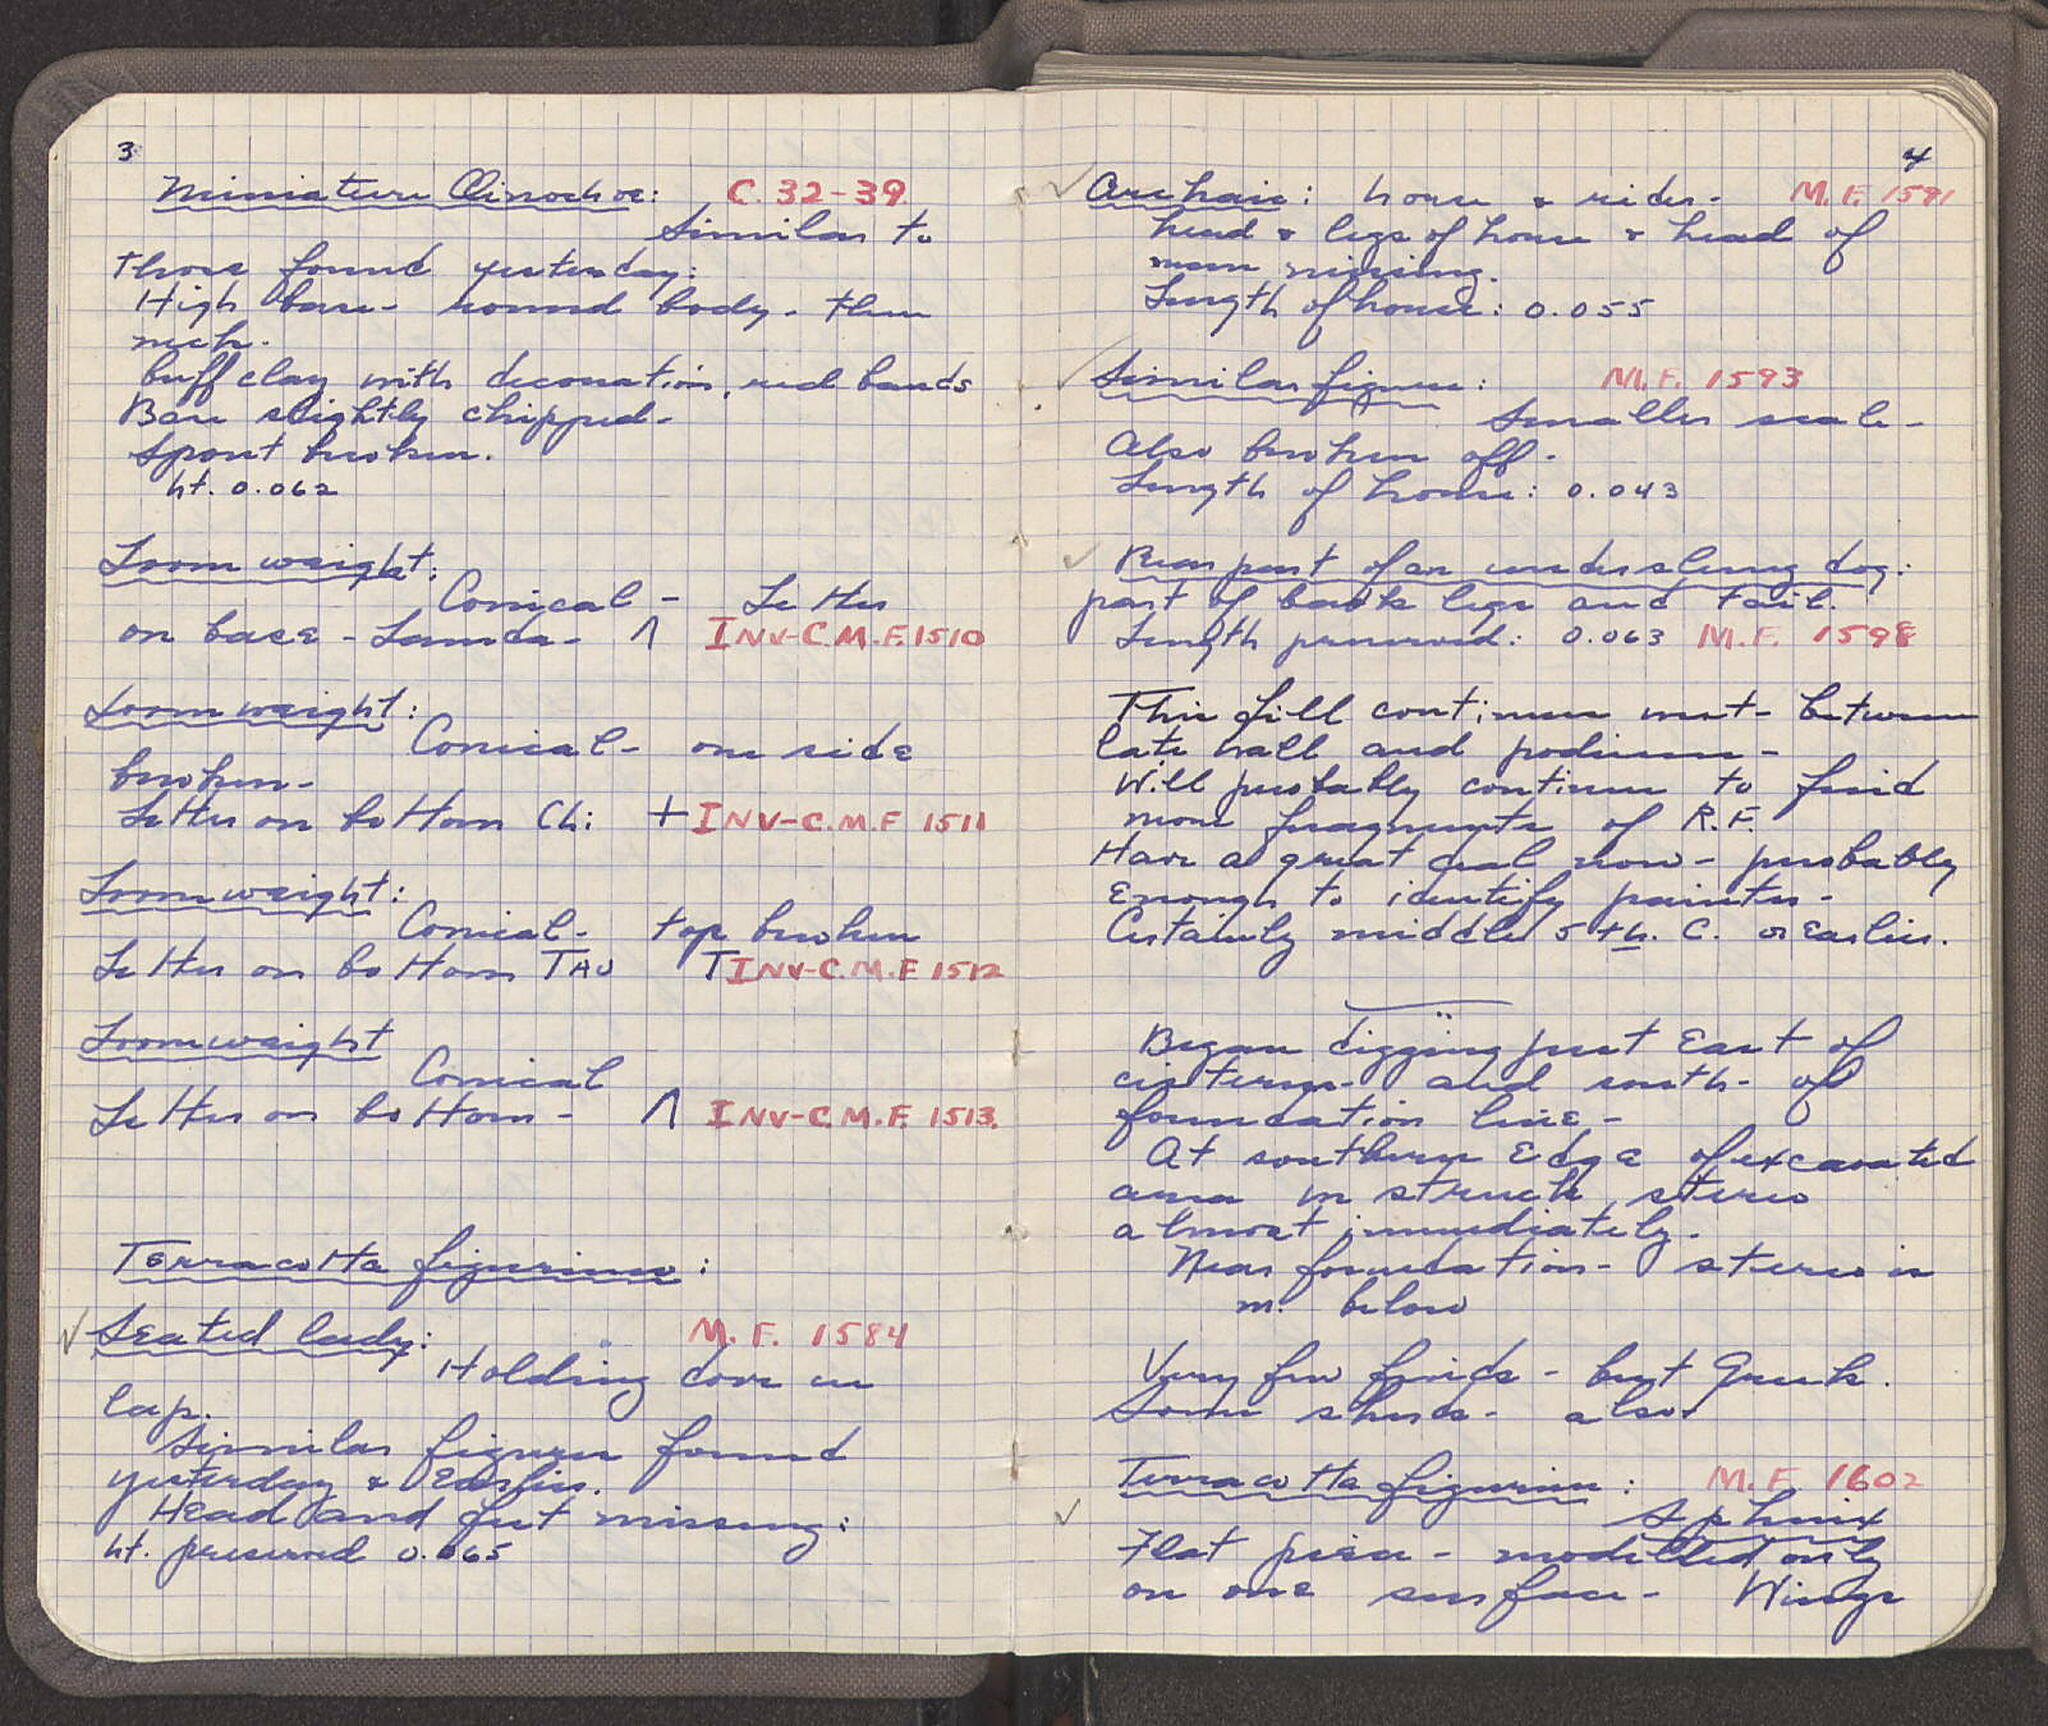 3
Miniature Oinochoe: C. 32-39
Similar to
those found yesterday:
High base - round body - thin
neck.
buff clay with decoration, red bands
Base slightly chipped -
Spout broken.
ht. 0.062
Loomweight:
Conical - Letter
on base - Lamda - Λ INV-C.M.F. 1510
Loomweight:
Conical - one side
broken -
Letter on bottom Chi + INV-C.M.F 1511
Loomweight:
Conical - top broken
Letter on bottom TAU T INV-C.M.F 1512
Loomweight
Conical
Letter on bottom - Λ INV-C.M.F. 1513.
Terracotta figurines:
✓ Seated lady: M.F. 1584
Holding dove in
lap.
Similar figures found
yesterday & Earlier.
Head and feet missing:
ht. preserved 0.065
4
✓ Archaic: horse & rider - M.F. 1591
head & legs of horse & head of
man missing.
Length of horse: 0.055
✓ Similar figure: M.F. 1593
Smaller scale -
Also broken off -
Length of horse: 0.043
✓ Rear part of an underslung dog:
part of back legs and tail.
Length preserved: 0.063 M.F. 1598
This fill continues west - between
late wall and podium -
Will probably continue to find
more fragments of R.F.
Have a great deal now - probably
Enough to identify painter -
Certainly middle 5th. C. or Earlier.
Began digging just East of
cisterns - and south - of
foundation line -
At southern Edge of excavated
area we struck stereo
almost immediately.
Near foundation - stereo is
m. below
Very few finds - but Greek.
Some sherds - also
Terracotta figurine: M.F. 1602
✓ Sphinx
Flat piece - modelled only
on one surface - Wings